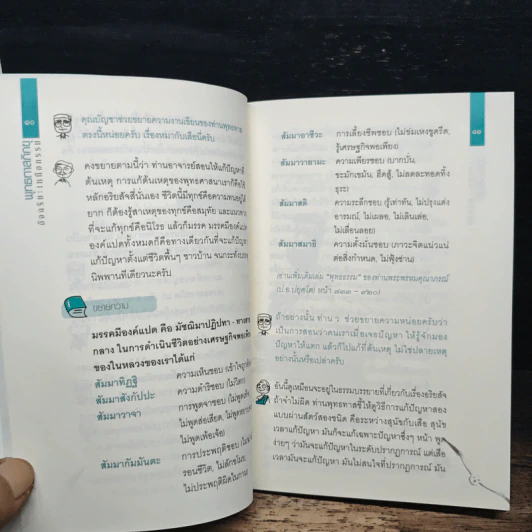 ๑๐
พุทธทาสภิกขุ
อัจฉริยะเหนือธรรม
คุณบัญชาช่วยขยายความงานเขียนของท่านพุทธทาส
ตรงนี้หน่อยครับ เรื่องหมากับเสือนี่ครับ
คงขยายตามนี้ว่า ท่านอาจารย์สอนให้แก้ปัญหาที่
ต้นเหตุ การแก้ต้นเหตุของพุทธศาสนาเราก็คือให้
หลักอริยสัจสี่นั่นเอง ชีวิตนี้มีทุกข์
ยาก ก็ต้องรู้สาเหตุของทุกข์คือสมุทัย และแนวทาง
ที่จะแก้ทุกข์คือนิโรธ แล้วก็มรรค มรรคมีองค์แปด
องค์แปดทั้งหมดก็คือทางเดียวกันที่จะแก้ปัญหา
ปัญหาตั้งแต่ชีวิตพื้นๆ ชาวบ้าน จนกระทั่ง
นิพพานทีเดียวนะครับ
ขยายความ
มรรคมีองค์แปด คือ มัชฌิมาปฏิปทา - ทางสาย
กลาง ในการดำเนินชีวิตอย่างเศรษฐกิจพอเพียง
ของในหลวงของเราได้แก่
สัมมาทิฏฐิ ความเห็นชอบ (เข้าใจ
สัมมาสังกัปปะ ความดำริชอบ
สัมมาวาจา การพูดจาชอบ (ไม่พูด
ไม่พูดส่อเสียด, ไม่พูด
ไม่พูดเพ้อเจ้อ)
สัมมากัมมันตะ การประพฤติชอบ
รอนชีวิต, ไม่ลักขโมย,
ไม่ประพฤติผิดในกาม)
๑๑
สัมมาอาชีวะ การเลี้ยงชีพชอบ (ไม่ข่มเหงขูดรีด,
รู้เศรษฐกิจพอเพียง)
สัมมาวายามะ ความเพียรชอบ (บากบั่น,
ขะมักเขม้น, ฮึดสู้, ไม่ลดละทอดทิ้ง
ธุระ)
สัมมาสติ ความระลึกชอบ (รู้เท่าทัน, ไม่ปรุงแต่ง
อารมณ์, ไม่เผลอ, ไม่เลินเล่อ,
ไม่เลื่อนลอย)
สัมมาสมาธิ ความตั้งมั่นชอบ (ภาวะจิตแน่วแน่
ต่อสิ่งกำหนด, ไม่ฟุ้งซ่าน)
(อ่านเพิ่มเติมเล่ม "พุทธธรรม" ของท่านพระพรหมคุณาภรณ์
(ป.อ.ปยุตฺโต) หน้า
ถ้าอย่างนั้น ท่าน ว ช่วยขยายความหน่อยครับว่า
เป็นการสอนว่าคนเราเมื่อเจอปัญหา ให้รู้จักมอง
ปัญหาให้แตก แล้วก็ไปแก้ที่ต้นเหตุ ไม่ใช่ปลายเหตุ
อย่างนั้นหรือเปล่าครับ
อันนี้ดูเหมือนจะอยู่ในธรรมบรรยายที่เกี่ยวกับเรื่องอริยสัจ
ถ้าจำไม่ผิด ท่านพุทธทาสชี้ให้ดูวิธีการแก้ปัญหาสอง
แบบผ่านสัตว์สองชนิด คือระหว่างสุนัขกับเสือ สุนัข
เวลาแก้ปัญหา มันก็จะแก้เฉพาะปัญหาซึ่งๆ หน้า พูด
ง่ายๆ ว่ามันจะแก้ปัญหาในระดับปรากฏการณ์ แต่เสือ
เวลามันจะแก้ปัญหา มันไม่สนใจที่ปรากฏการณ์ มัน